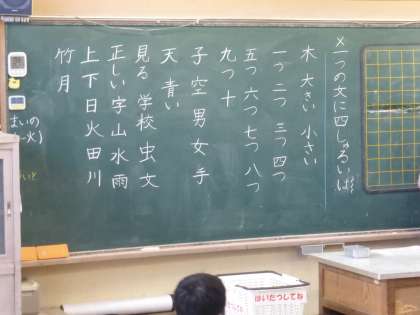 ×一つの文に四しゅるいは
木 大きい 小さい
一つ 二つ 三つ 四つ
五つ 六つ 七つ 八つ
九つ 十
子 空 男 女 手
天 青い
見る 学校 虫 文
正しい 字 山 水 雨
上 下 日 火 田 川
竹 月
まいの
火)
はいたつしてね